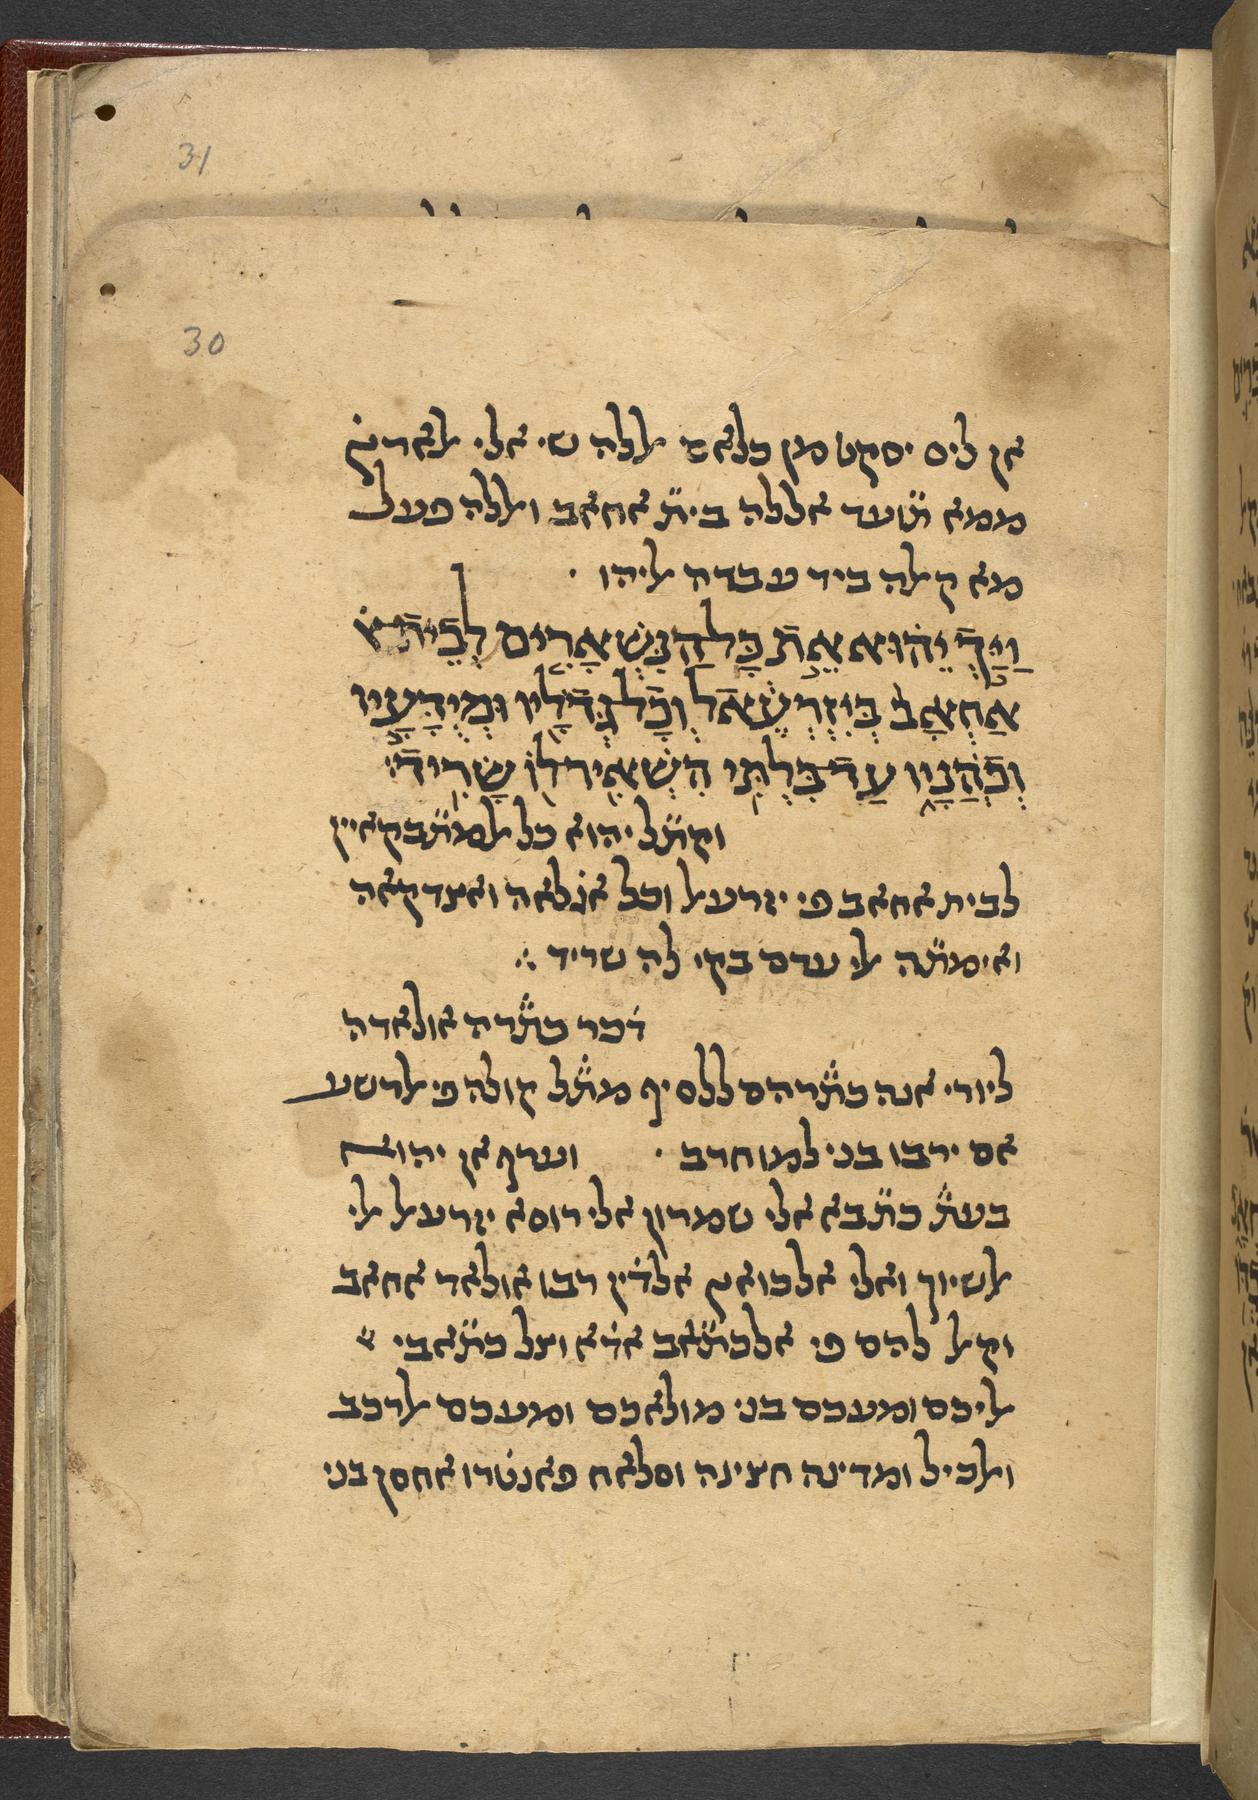 31
30
אן ליס יסקט מן כלאם ﭏלה שי אלי ﭏארض
ממא תׄועד אללה בית אחאב וﭏלה פעל
מא קﭏה ביד עבדה ﭏיהו ٠
וַיַּךְ יֵהוּא אֵת כָּל הַנִּשְׁאָרִים לְבֵית
אַחְאָב בְּיִזְרְעֶאל וְכָל גְּדֹלָיו וּמְיֻדָּעָיו
וְכֹהֲנָיו עַד בִּלְתִּי הִשְׁאִיר לוֹ שָׂרִיד׃
וקתׄל יהוא כל ﭏמתׄבקאיין
לבית אחאב פי יזרעﭏ וכל אגׄלאה ואצדקאה
ואימתׄה ﭏי עדם בקי לה שריד ∴
דׄכר כתׄרה אולאדה
ליורי אנה כתׄרהם ללסיף מתׄל קולה פי ﭏרשע
אם ירבו בניו למו חרב ٠ וערף אן יהוא
בעתׄ כתׄבא אלי שמרון אלי רוסא יזרעﭏ ﭏי
ﭏשיוך ואלי אלכואץ אלדׄין רבו אולאד אחאב
וקﭏ להם פי אלכתׄאב אדׄא וצל כתׄאבי
ﭏיכם ומעכם בני מולאכם ומעכם ﭏרכב
וﭏכיל ומדינה חצינה וסלאח פאנטׄרו אחסן בני